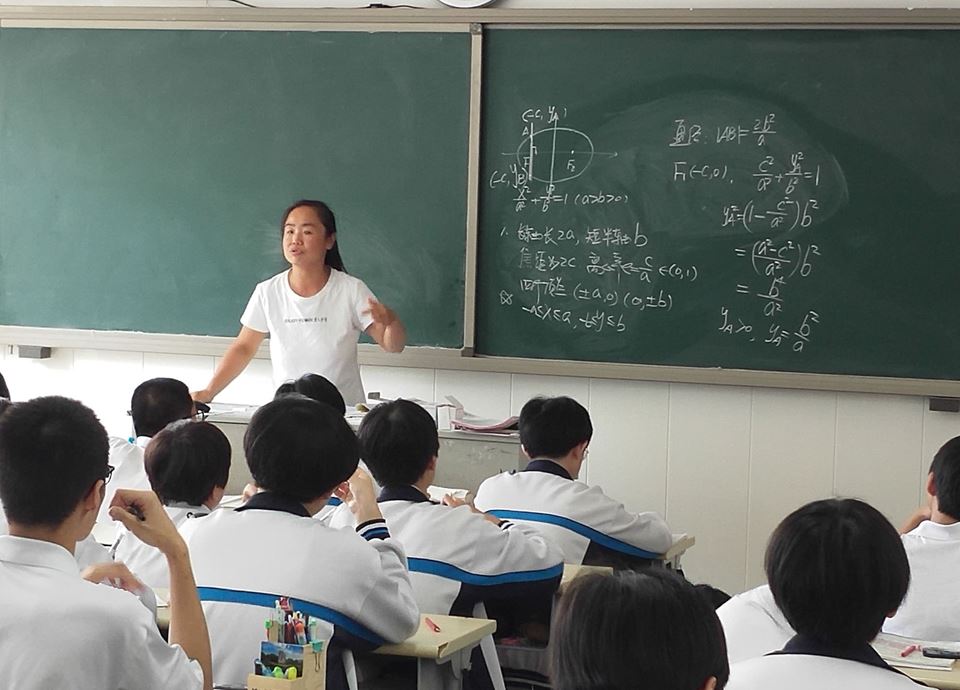 (-c, y_A)
A
F₂
(-c, y_B)
x²/a² + y²/b² = 1 (a>b>0)
1. 长轴长2a, 短半轴b
焦距为2c 离心率e=c/a ∈(0,1)
四个顶点 (±a,0) (0,±b)
-a≤x≤a, -b≤y≤b
通径: |AB|= 2b²/a
F₁(-c,0), c²/a² + y_A²/b² = 1
y_A² = (1 - c²/a²)b²
= (a²-c²/a²)b²
= b⁴/a²
y_A>0, y_A = b²/a